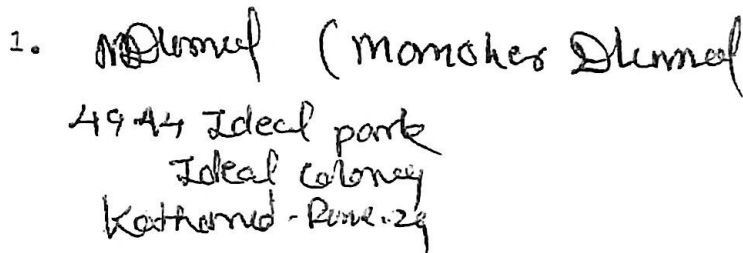 1. MDhumal (Manohar Dhumal
49 A4 Ideal park
Ideal Colony
Kothrud - Pune. 29